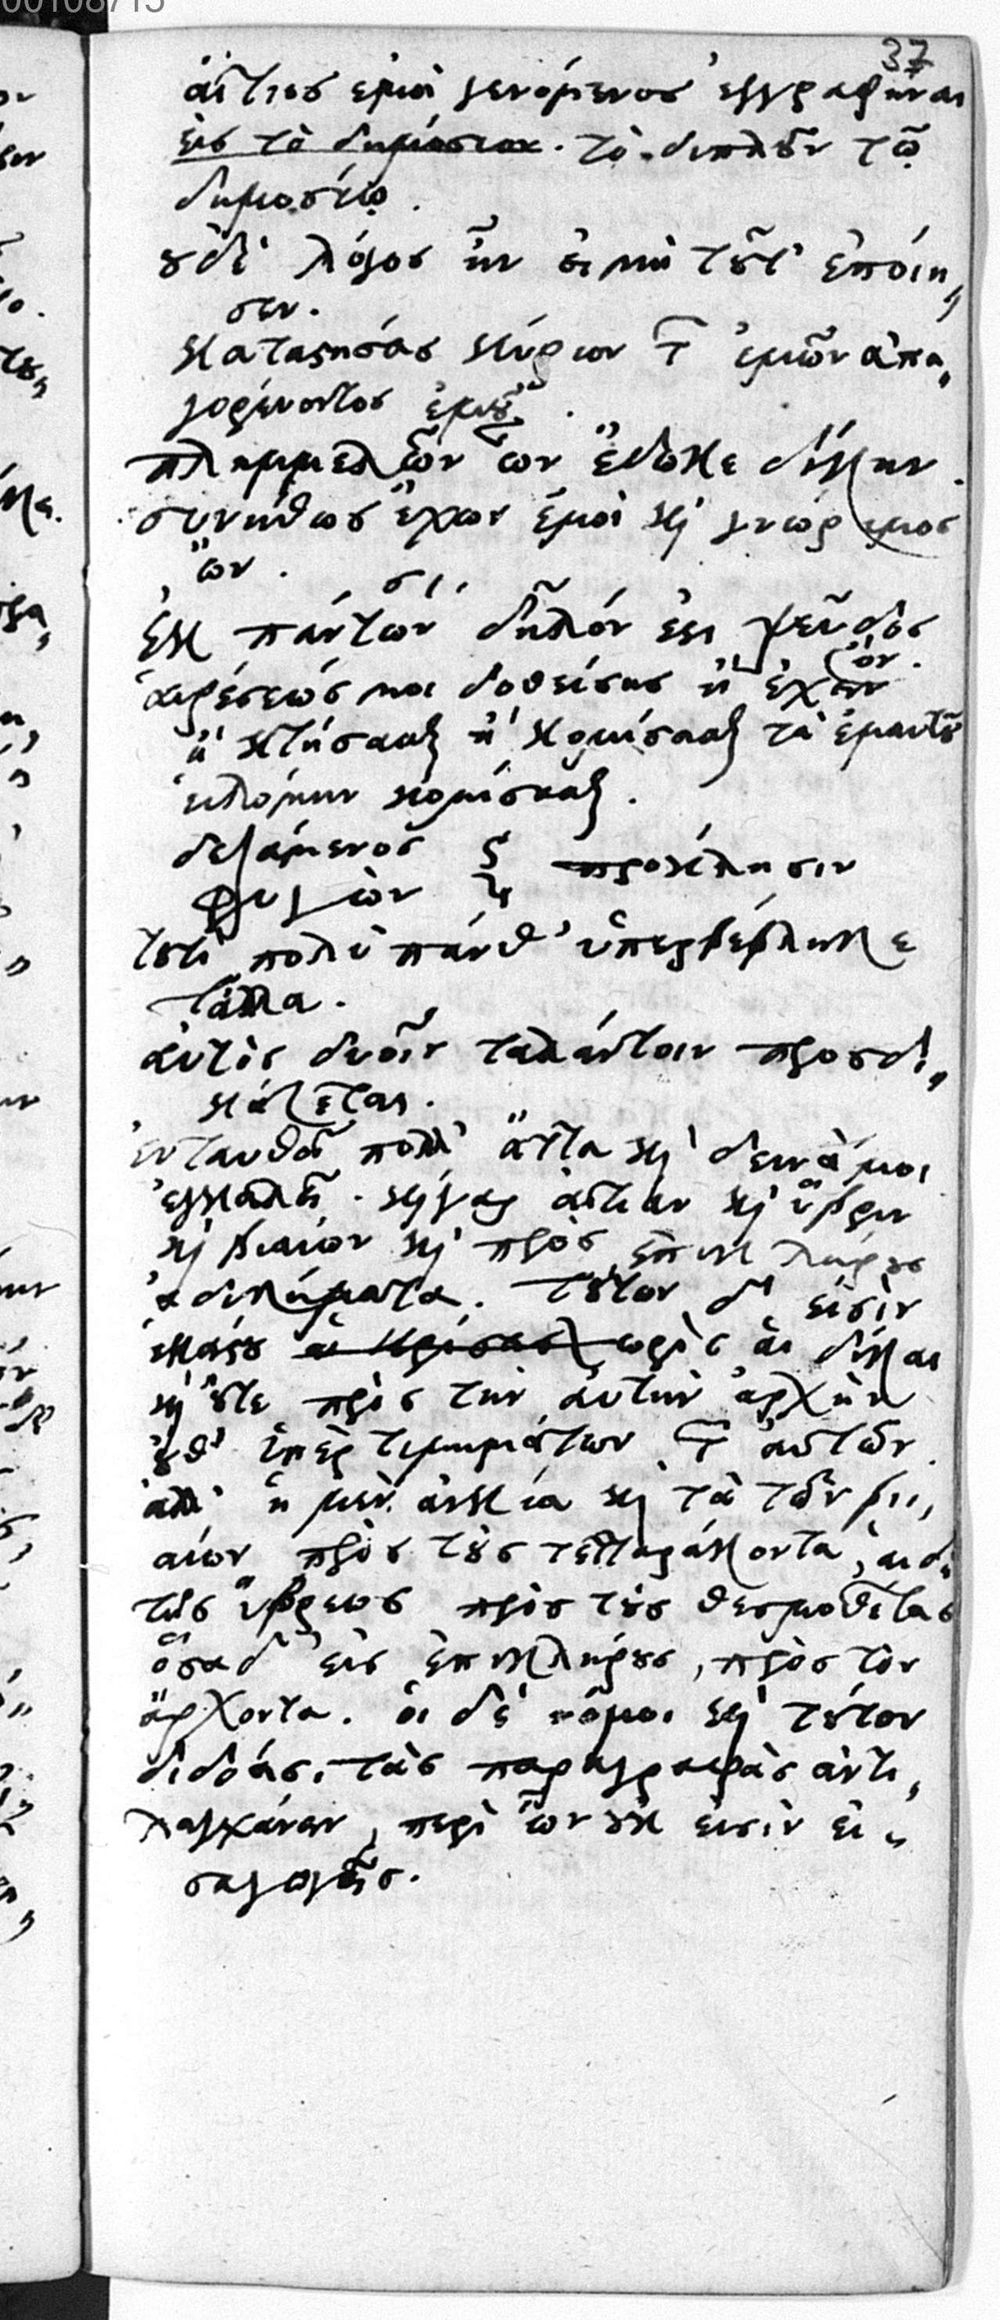 00108713
37
αἴτιος ἐμοὶ γενόμενος ἐγγραφῆναι
εἰς τὸ δημόσιον. τὸ διπλοῦν τῷ
δημοσίῳ.
οὐδεὶ λόγος ἦν εἰ μὴ τοῦτ' ἐποίη,
σεν.
καταστήσας κύριον τῶν ἐμῶν ἀπα,
γορεύοντος ἐμοῦ.
πλημμελῶν ὧν ἔδωκε δίκην.
συνήθως ἔχων ἐμοὶ καὶ γνώριμος
ὤν.
σι,
ἐκ πάντων δῆλόν ἐστι ψεῦδος
ὄν.
αἱρέσεώς μοι δοθείσης ἢ ἔχειν
ἃ κτήσασθαι ἢ κομίσασθαι τὰ ἐμαυτοῦ
εἱλόμην κομίσασθαι.
δεξάμενος
φυγὼν } προκλησιν
τουτὶ πολὺ πάνθ' ὑπερβέβληκε
τἄλλα.
αὐτὸς δυοῖν ταλάντοιν προσδι,
κάζεται.
ἐνταυθοῖ πόλλ' ἄττα καὶ δεινά μοι
ἐγκαλεῖ. καὶ γὰρ αἰκίαν καὶ ὕβριν
καὶ βιαίων καὶ πρὸς ἐπικλήρους
ἀδικήματα. τούτων δ' εἰσὶν
ἑκάστου αἱ κρίσεις χωρὶς αἱ δίκαι
καὶ οὔτε πρὸς τὴν αὐτὴν ἀρχὴν
οὔθ' ὑπὲρ τιμημάτων τῶν αὐτῶν.
ἀλλ' ἡ μὲν αἰκία καὶ τὰ τῶν βι,
αίων πρὸς τοὺς τετταράκοντα, αἱ δὲ
τῆς ὕβρεως πρὸς τοὺς θεσμοθέτας
ὅσα δ' εἰς ἐπικλήρους, πρὸς τὸν
ἄρχοντα. οἱ δὲ νόμοι καὶ τούτων
διδόασι τὰς παραγραφὰς ἀντι,
λαγχάνειν, περὶ ὧν οὐκ εἰσὶν εἰ,
σαγωγεῖς.